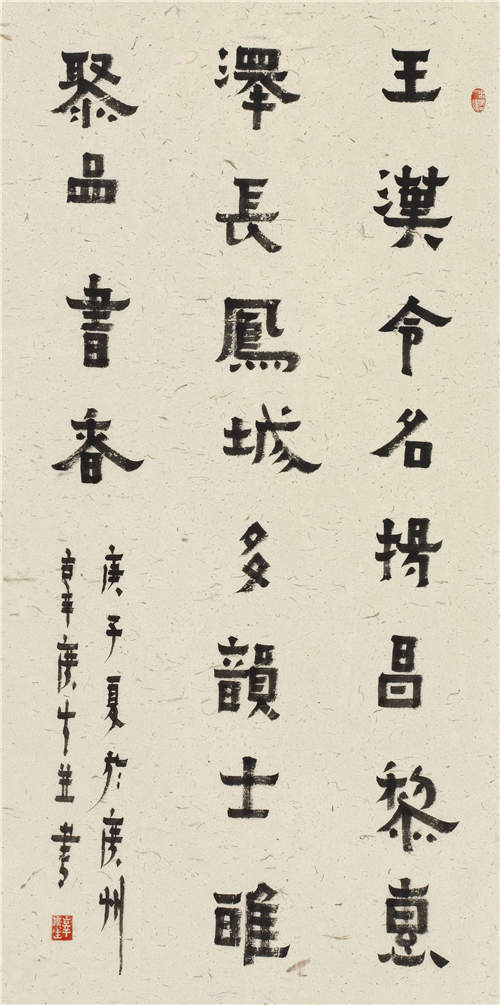 王漢令名揚昌黎惠
澤長鳳城多韻士雅
聚品書香
庚子夏於廣州
辜廣並書